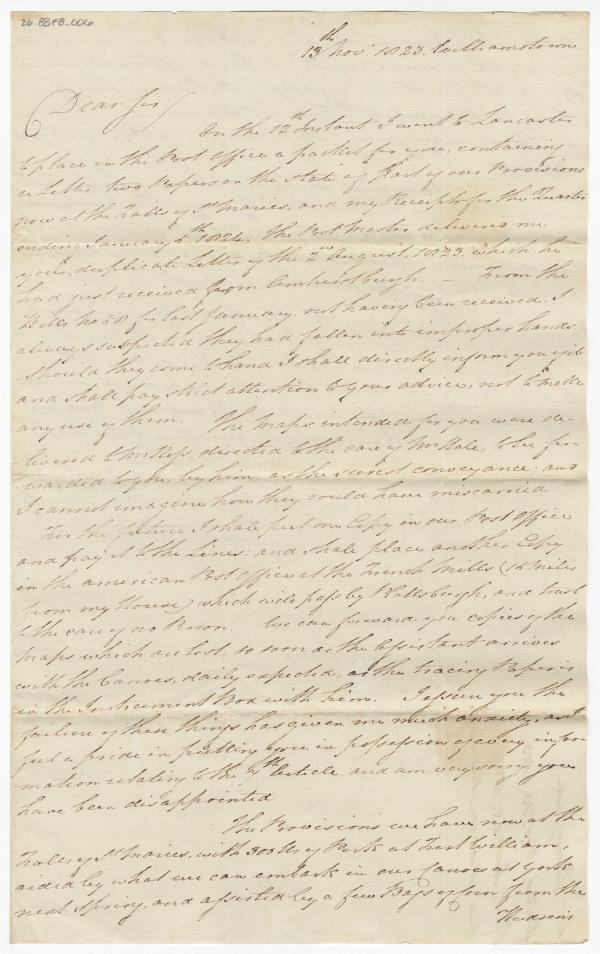 26-BBFB-006
13th Nov. 1823. Williamstown
Dear Sir
On the 12th Instant I went to Lancaster
to place in the Post Office a packet for you, containing
a Letter: two Papers on the state of part of our Provisions
now at the Falls of St Maries, and my Receipt for the Quarter
ending January 1824. The Post Master delivered me
your duplicate Letter of the 2nd August 1823. which he
had just received from Amherstburgh. — From the
Bills for last January, not having been received, I
always suspected they had fallen into improper hands
Should they come to hand I shall directly inform you of it
and shall pay strict attention to your advice, not to make
any use of them. The Maps intended for you were de-
livered to Mr directed to the care of Mr Hale, to be for-
warded to you, by him, as the surest conveyance: and
I cannot imagine how they could have miscarried
For the future I shall put one Copy in our Post Office
and pay it to the Lines: and shall place another Copy
in the american Post Office at the French Mills (12 Miles
from my House) which will pass by Plattsburgh, and trust
to the care of no Person. We can forward you copies of the
Maps which are lost, so soon as the Assistant arrives
with the Canoes, daily expected, as the tracing Paper is
in the Instrument Box with him. I assure you the
failure of these things has given me much anxiety, as I
feel a pride in putting you in possession of every infor-
mation relating to the 7th Article, and am very sorry you
have been disappointed
The Provisions we have now at the
Falls of St Maries, with 300 lbs of Pork at Fort William,
aided by what we can embark in our Canoes at York
next Spring, and assisted by a few Bags of corn from the
Hudson's